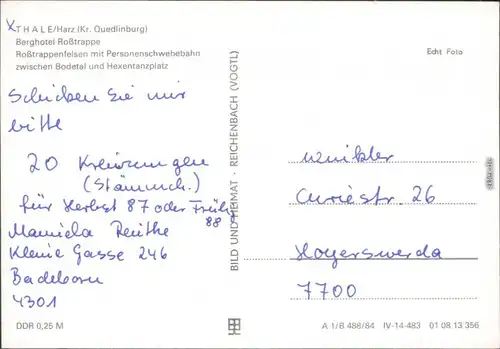 THALE/Harz (Kr. Quedlinburg)
Berghotel Roßtrappe
Roßtrappenfelsen mit Personenschwebebahn
zwischen Bodetal und Hexentanzplatz
Echt Foto
Schicken Sie mir
bitte
20
(Stämmch.)
für Herbst 87 oder Früh
88
Kleine Gasse 246
Badeborn
4301
BILD UND HEIMAT · REICHENBACH (VOGTL)
Winkler
Curiestr. 26
Hoyerswerda
7700
DDR 0,25 M
A 1/B 488/84 IV-14-483 01 08 13 356